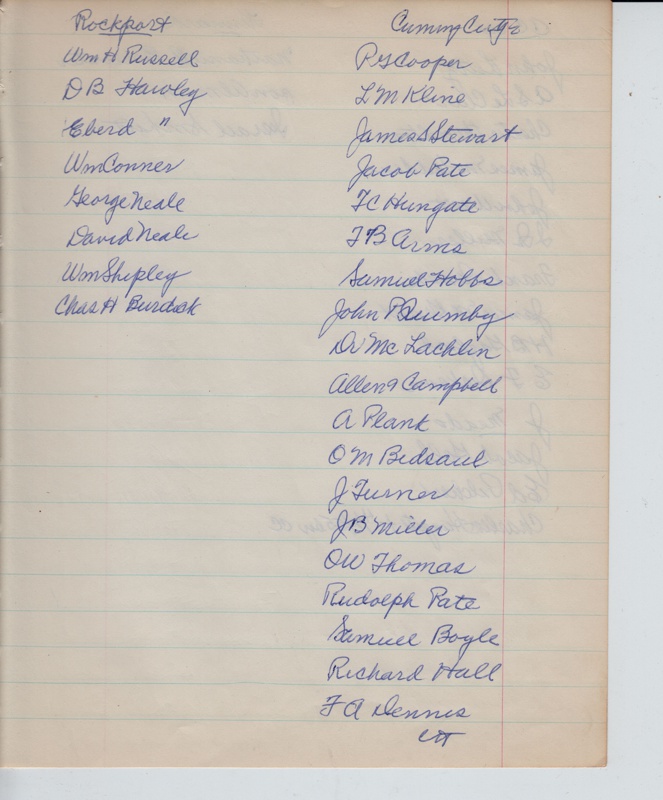 Rockport
Wm H Russell
D B Hawley
Eberd "
Wm Conner
George Neale
David Neale
Wm Shipley
Chas H Burdick
Cuming City
P G Cooper
L M Kline
James S Stewart
Jacob Pate
F C Hungate
F B Arms
Samuel Hobbs
John P Quumby
Dr Mc Lachlin
Allen & Campbell
A Plank
O M Bedsaul
J Turner
J B Miller
O W Thomas
Rudolph Pate
Samuel Boyle
Richard Hall
F A Dennis